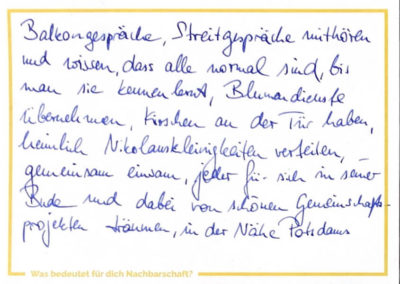 Balkongespräche, Streitgespräche mithören
und wissen, dass alle normal sind, bis
man sie kennenlernt, Blumendienste
übernehmen, Kirschen an der Tür haben,
heimlich Nikolauskleinigkeiten verteilen, –
gemeinsam einsam, jeder für sich in seiner
Bude und dabei von schönen Gemeinschafts-
projekten träumen, in der Nähe Potsdams
Was bedeutet für dich Nachbarschaft?